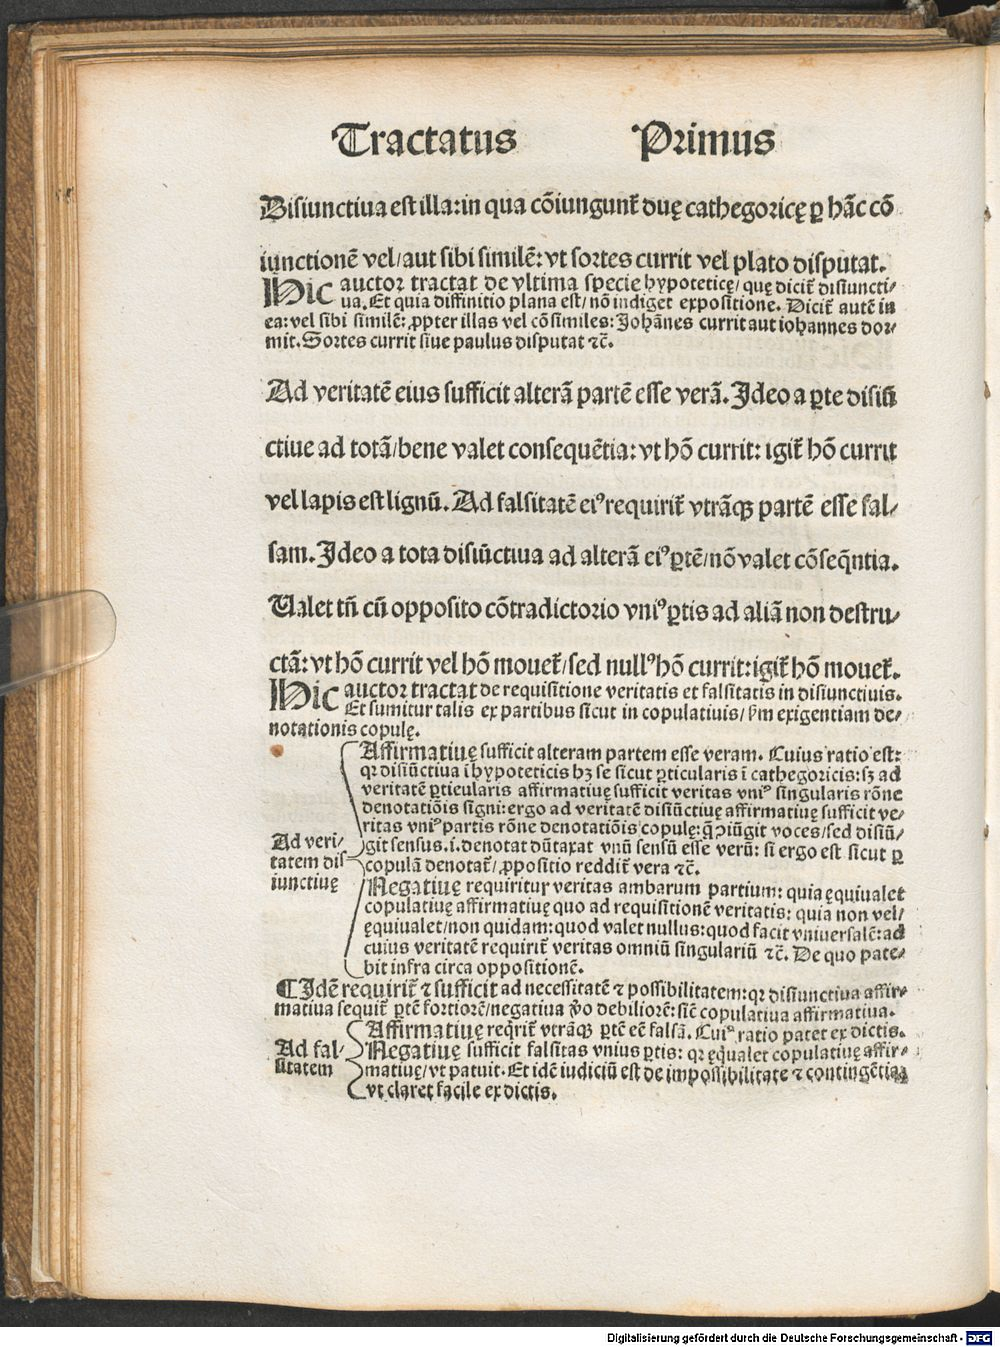 Tractatus Primus
Disiunctiua est illa: in qua cõiungunt᷑ duę cathegoricę ꝑ hãc cõ
iunctionẽ vel/aut sibi similẽ: vt sortes currit vel plato disputat.
Hic auctor tractat de vltima specie hypoteticę/ quę dicit᷑ disiuncti/
ua. Et quia diffinitio plana est/ nõ indiget expositione. Dicit᷑ autẽ in
ea: vel sibi similẽ: ꝓpter illas vel cõsimiles: Johãnes currit aut iohannes dor/
mit. Sortes currit siue paulus disputat ⁊c̃.
Ad veritatẽ eius sufficit alterã partẽ esse verã. Ideo a ꝑte disiũ
ctiue ad totã/bene valet consequẽtia: vt hõ currit: igit᷑ hõ currit
vel lapis est lignũ. Ad falsitatẽ eiꝰ requirit᷑ vtrãqꝫ partẽ esse fal/
sam. Ideo a tota disiũctiua ad alterã eiꝰ ꝑtẽ/nõ valet cõseq̃ntia.
Ualet tñ cũ opposito cõtradictorio vniꝰ ꝑtis ad aliã non destru/
ctã: vt hõ currit vel hõ mouet᷑/sed nullꝰ hõ currit: igit᷑ hõ mouet᷑.
Hic auctor tractat de requisitione veritatis et falsitatis in disiunctiuis.
Et sumitur talis ex partibus sicut in copulatiuis/ ẜm exigentiam de/
notationis copulę.
Ad veri/
tatem dis
iunctiuę
Affirmatiuę sufficit alteram partem esse veram. Cuius ratio est:
qꝛ disiũctiua ĩ hypoteticis hꝫ se sicut ꝑticularis ĩ cathegoricis: sꝫ ad
veritatẽ ꝑticularis affirmatiuę sufficit veritas vniꝰ singularis rõne
denotatiõis signi: ergo ad veritatẽ disiũctiuę affirmatiuę sufficit ve/
ritas vniꝰ partis rõne denotatiõis copulę: q̃ ↄiũgit voces/sed disiũ/
git sensus. i. denotat dũtaxat vnũ sensũ esse verũ: si ergo est sicut ꝑ
copulã denotat᷑/ ꝓpositio reddit᷑ vera ⁊c̃.
Negatiuę requiritur veritas ambarum partium: quia ęquiualet
copulatiuę affirmatiuę quo ad requisitionẽ veritatis: quia non vel/
ęquiualet/non quidam: quod valet nullus: quod facit vniuersalẽ: ad
cuius veritatẽ requirit᷑ veritas omniũ singulariũ ⁊c̃. De quo pate/
bit infra circa oppositionẽ.
¶ Idẽ requirit᷑ ⁊ sufficit ad necessitatẽ ⁊ possibilitatem: qꝛ disiunctiua affir/
matiua sequit᷑ ꝑtẽ fortiorẽ/negatiua ꝟo debiliorẽ: siẽ copulatiua affirmatiua.
Ad fal/
sitatem
Affirmatiuę req̃rit᷑ vtrãqꝫ ꝑtẽ eẽ falsã. Cuiꝰ ratio patet ex dictis.
Negatiuę sufficit falsitas vnius ꝑtis: qꝛ ęqualet copulatiuę affir/
matiuę/ vt patuit. Et idẽ iudiciũ est de impossibilitate ⁊ contingẽtia
vt claret facile ex dictis.
Digitalisierung gefördert durch die Deutsche Forschungsgemeinschaft - DFG